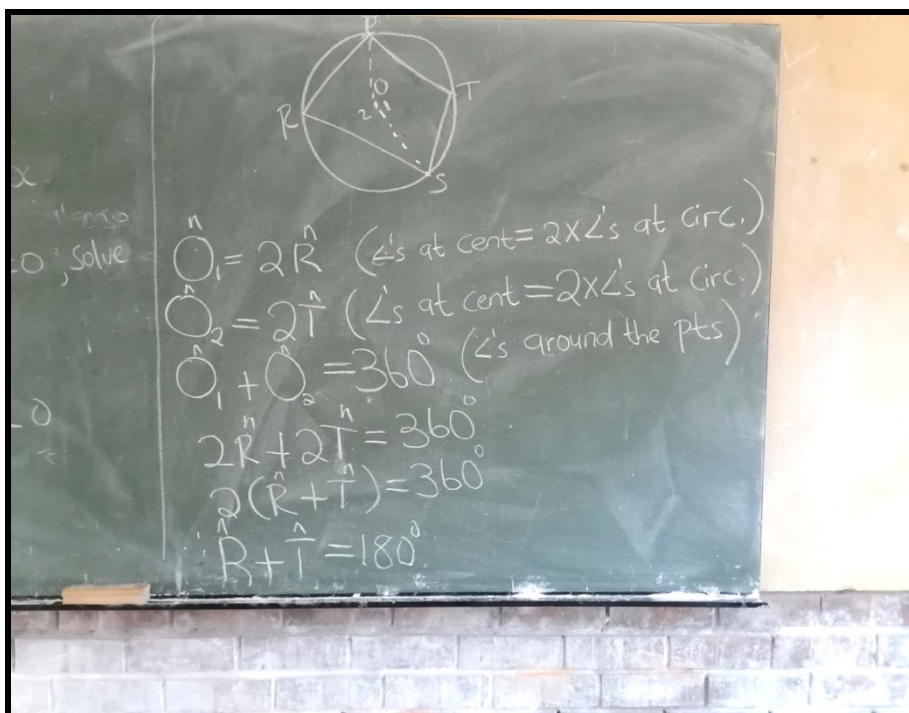 P
O
T
R
2
S
x
=0, solve
Ô₁ = 2R̂ (∠'s at cent = 2x∠'s at circ.)
Ô₂ = 2T̂ (∠'s at cent = 2x∠'s at circ.)
Ô₁ + Ô₂ = 360° (∠'s around the pts)
2R̂ + 2T̂ = 360°
2(R̂ + T̂) = 360°
R̂ + T̂ = 180°